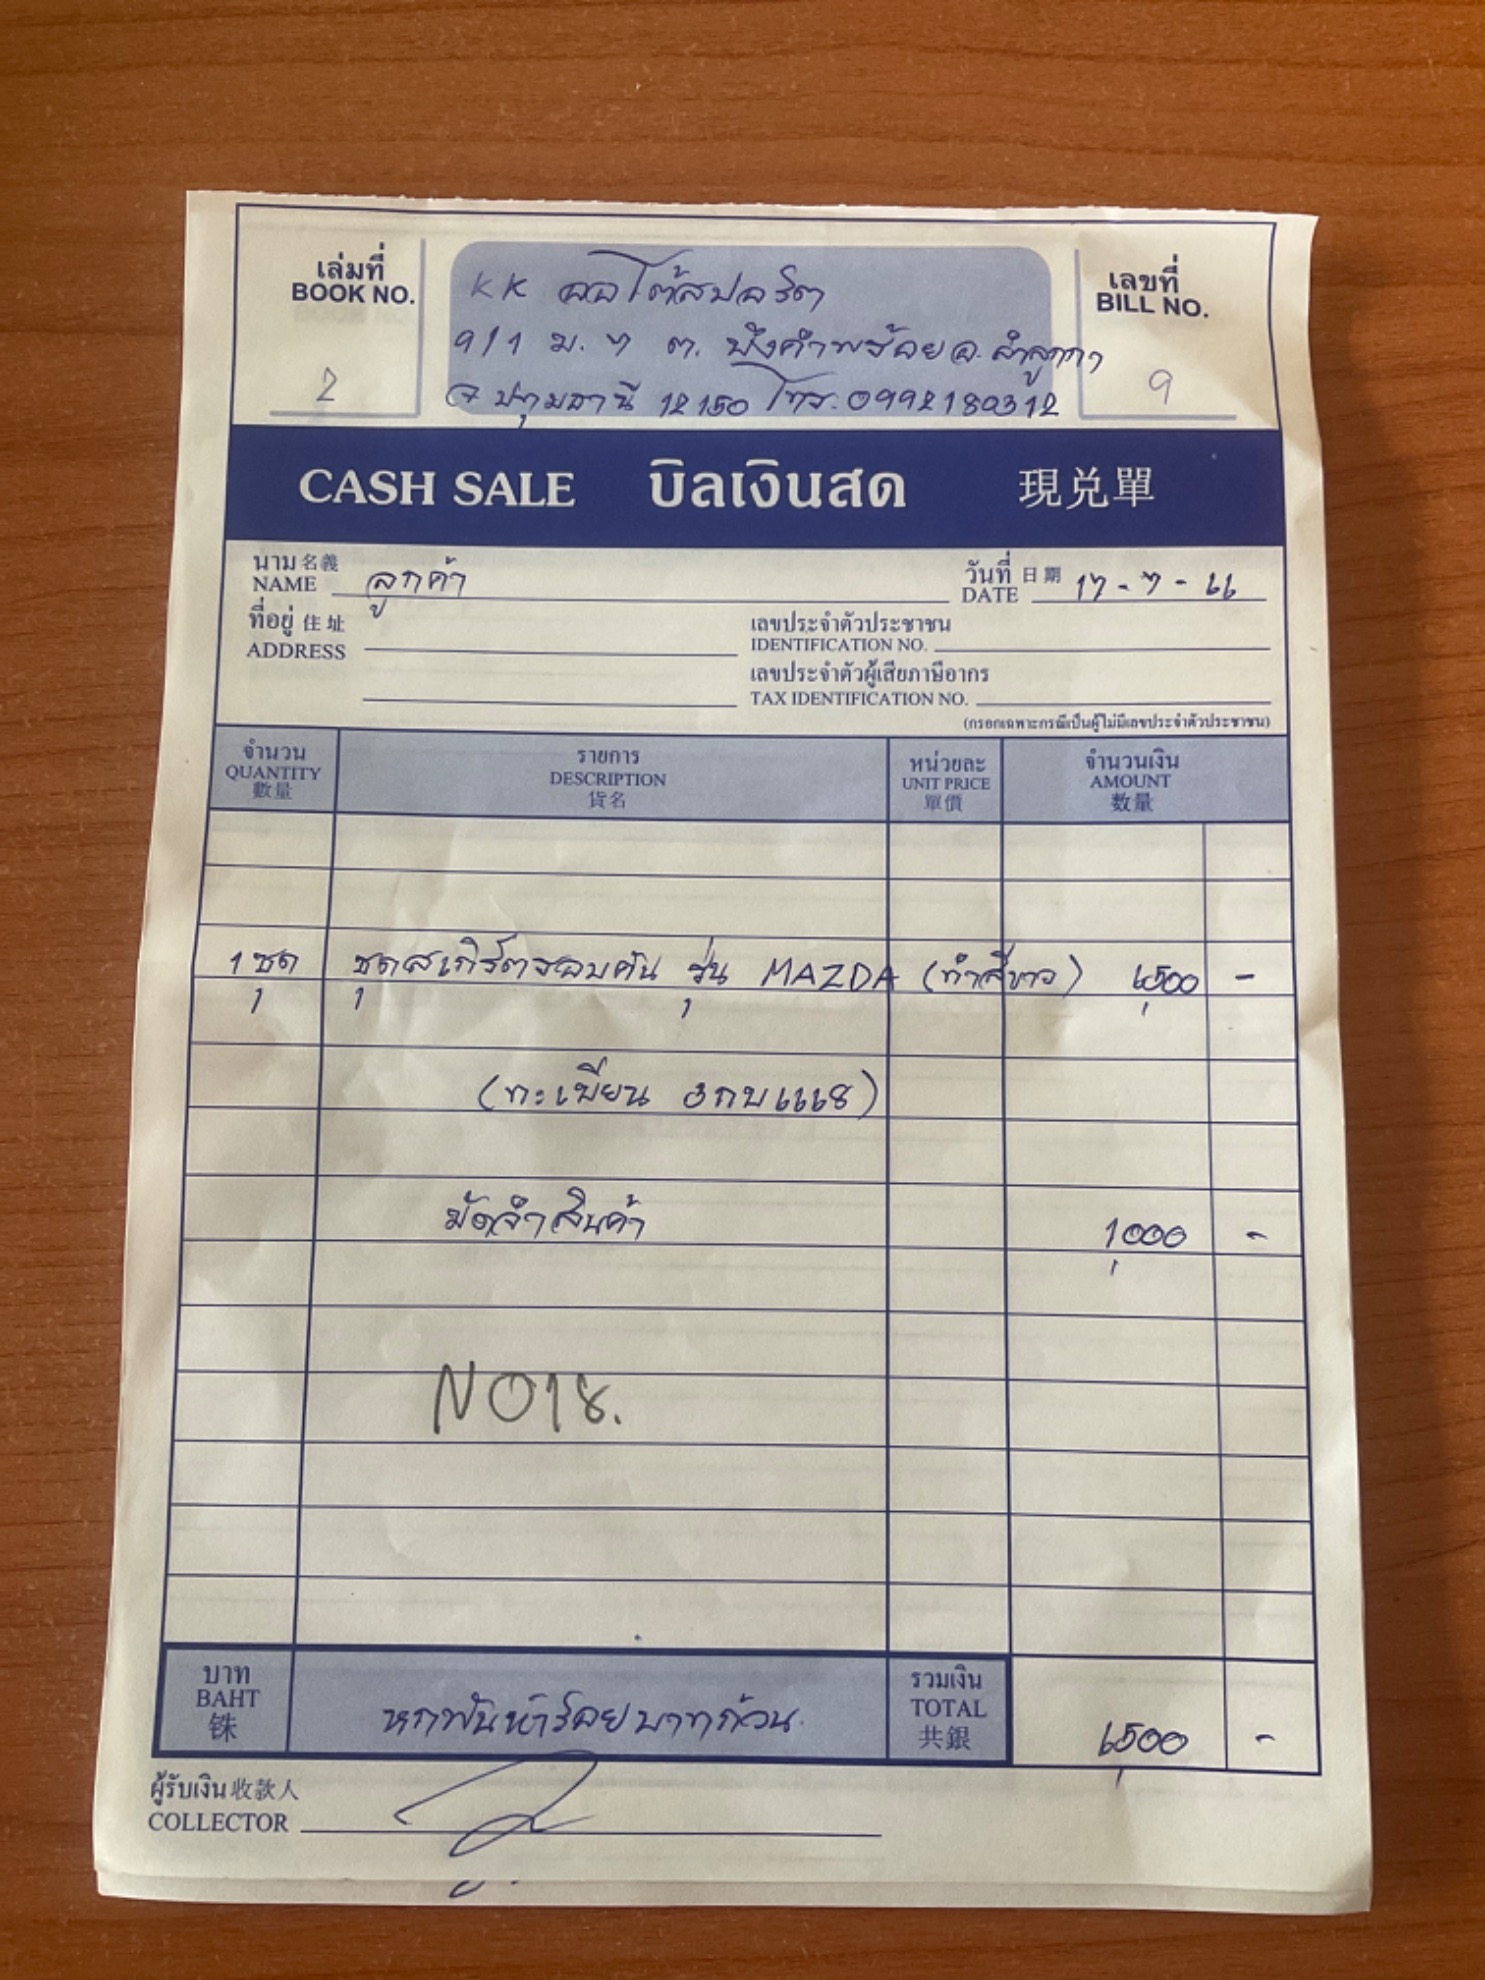 เล่มที่
BOOK NO.
2
KK ออโต้สปอร์ต
9/1 ม. 7 ต. บึงคำพร้อย อ. ลำลูกกา
จ. ปทุมธานี 12150 โทร. 0992180312
เลขที่
BILL NO.
9
CASH SALE บิลเงินสด 現兑單
นาม 名義
NAME ลูกค้า
วันที่ 日期
DATE 17-7-66
ที่อยู่ 住址
ADDRESS
เลขประจำตัวประชาชน
IDENTIFICATION NO.
เลขประจำตัวผู้เสียภาษีอากร
TAX IDENTIFICATION NO.
(กรอกเฉพาะกรณีเป็นผู้ไม่มีเลขประจำตัวประชาชน)
จำนวน
QUANTITY
數量
รายการ
DESCRIPTION
貨名
หน่วยละ
UNIT PRICE
單價
จำนวนเงิน
AMOUNT
数量
1 ชุด ชุดสเกิร์ตรอบคัน รุ่น MAZDA (ทำสีขาว) 6,500 -
(ทะเบียน 3กบ6668)
มัดจำสินค้า 1,000 -
NO18.
บาท
BAHT
铢
หกพันห้าร้อยบาทถ้วน.
รวมเงิน
TOTAL
共銀
6,500 -
ผู้รับเงิน 收款人
COLLECTOR